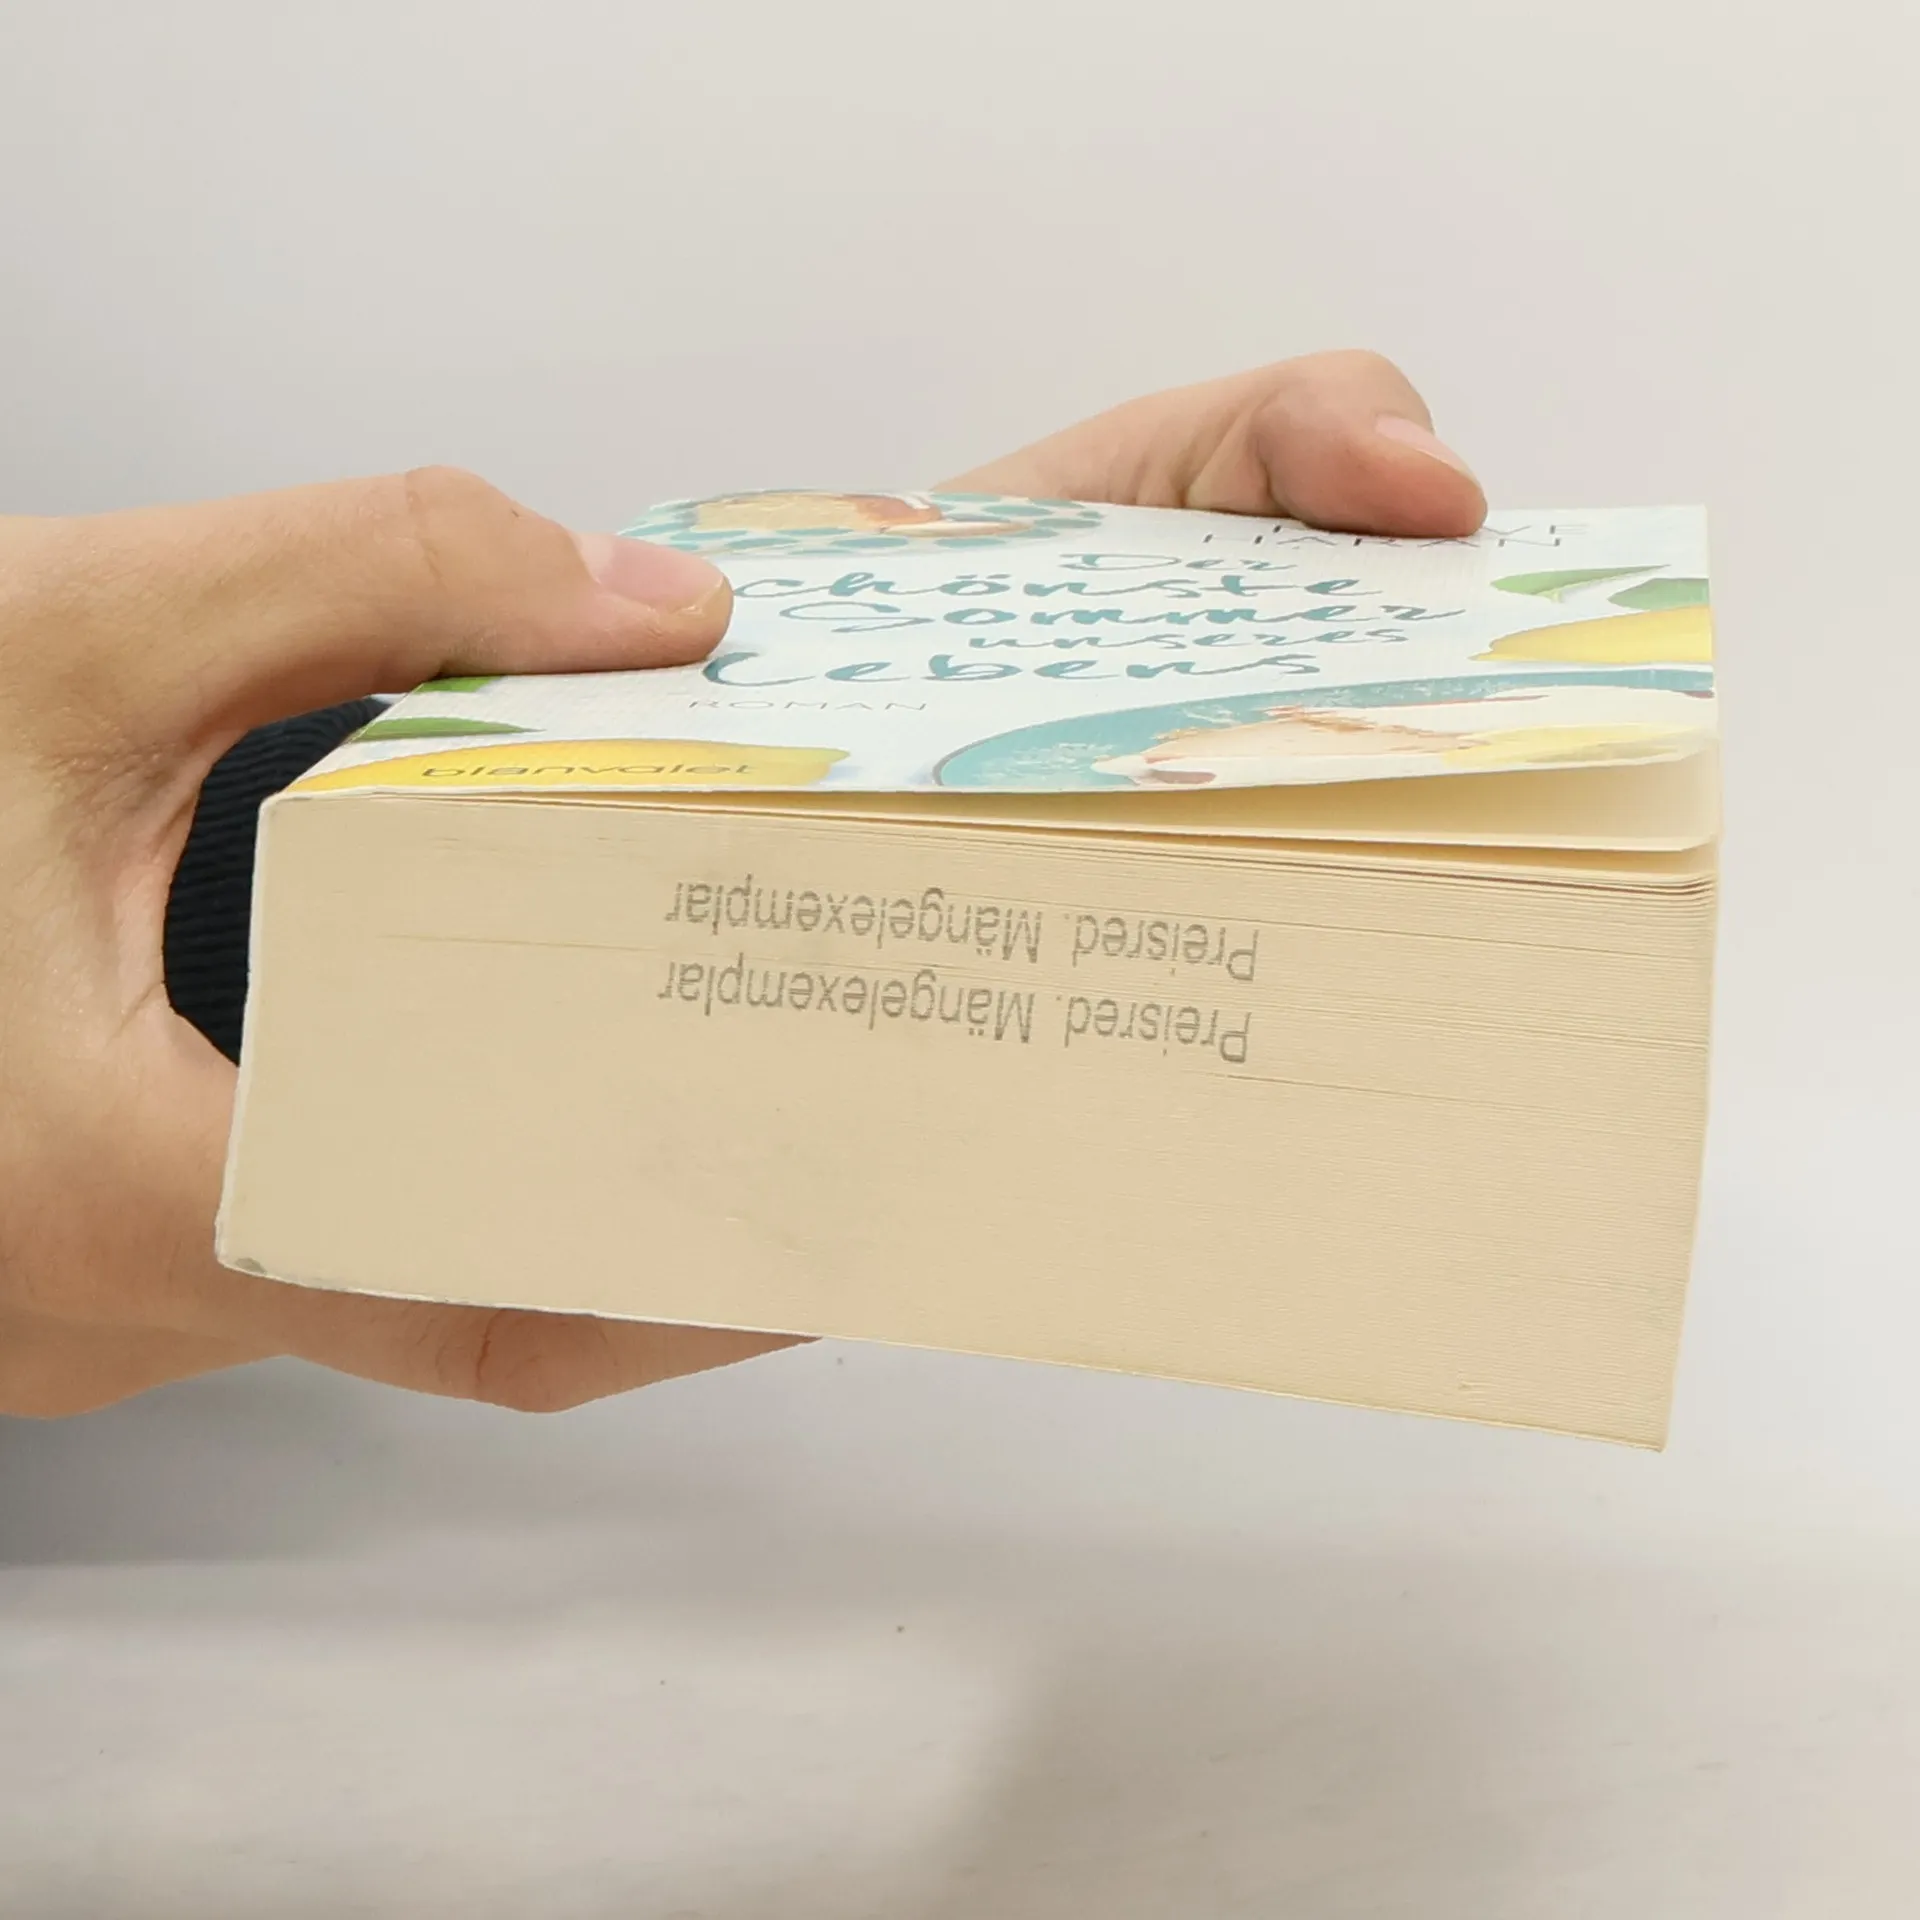 HARAN
Der
chönste
Sommer
unseres
Lebens
ROMAN
blanvalet
Preisred. Mängelexemplar
Preisred. Mängelexemplar